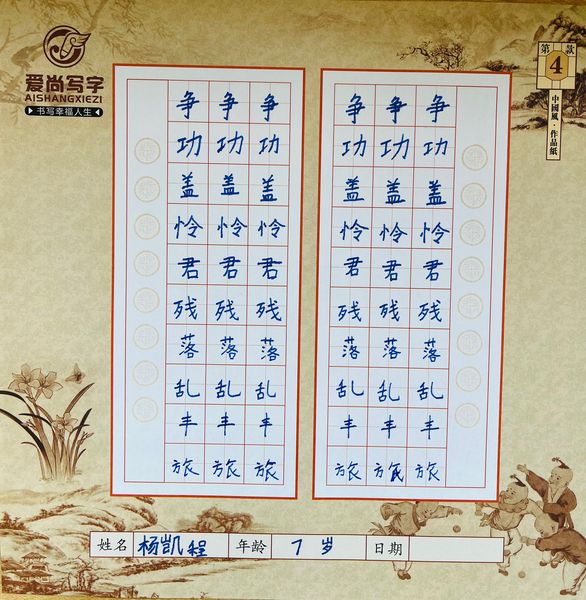 爱尚写字
AISHANGXIEZI
书写幸福人生
第4款
中國風·作品紙
争争争 争争争
功功功 功功功
盖盖盖 盖盖盖
怜怜怜 怜怜怜
君君君 君君君
残残残 残残残
落落落 落落落
乱乱乱 乱乱乱
丰丰丰 丰丰丰
旅旅旅 旅旅旅
姓名 杨凯程 年龄 7岁 日期